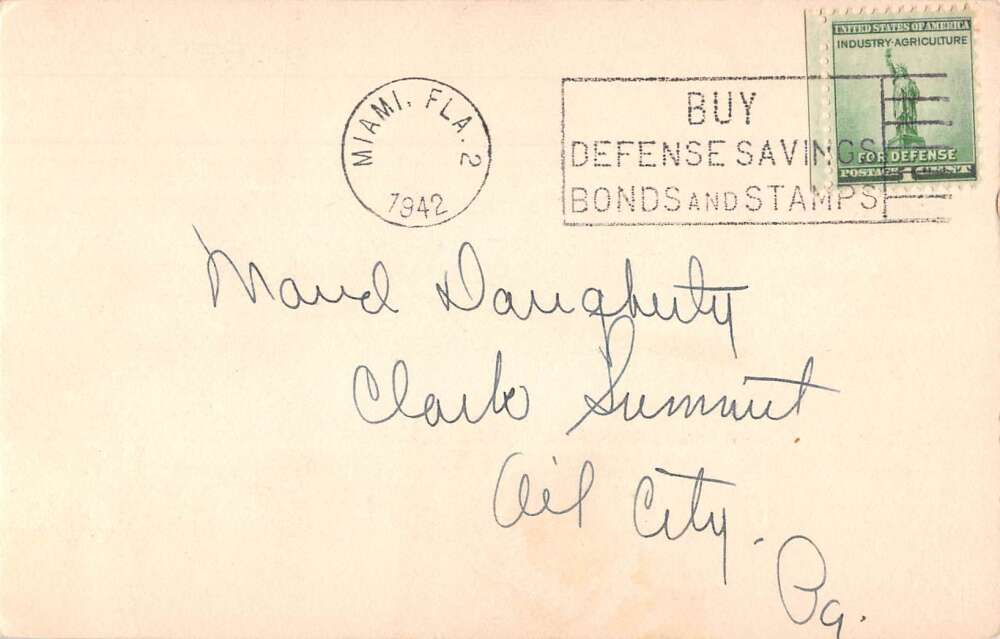 UNITED STATES OF AMERICA
INDUSTRY-AGRICULTURE
FOR DEFENSE
MIAMI, FLA. 2
1942
BUY
DEFENSE SAVINGS
BONDS AND STAMPS
Maud Daugherty
Clark Summit
Oil City.
Pa.